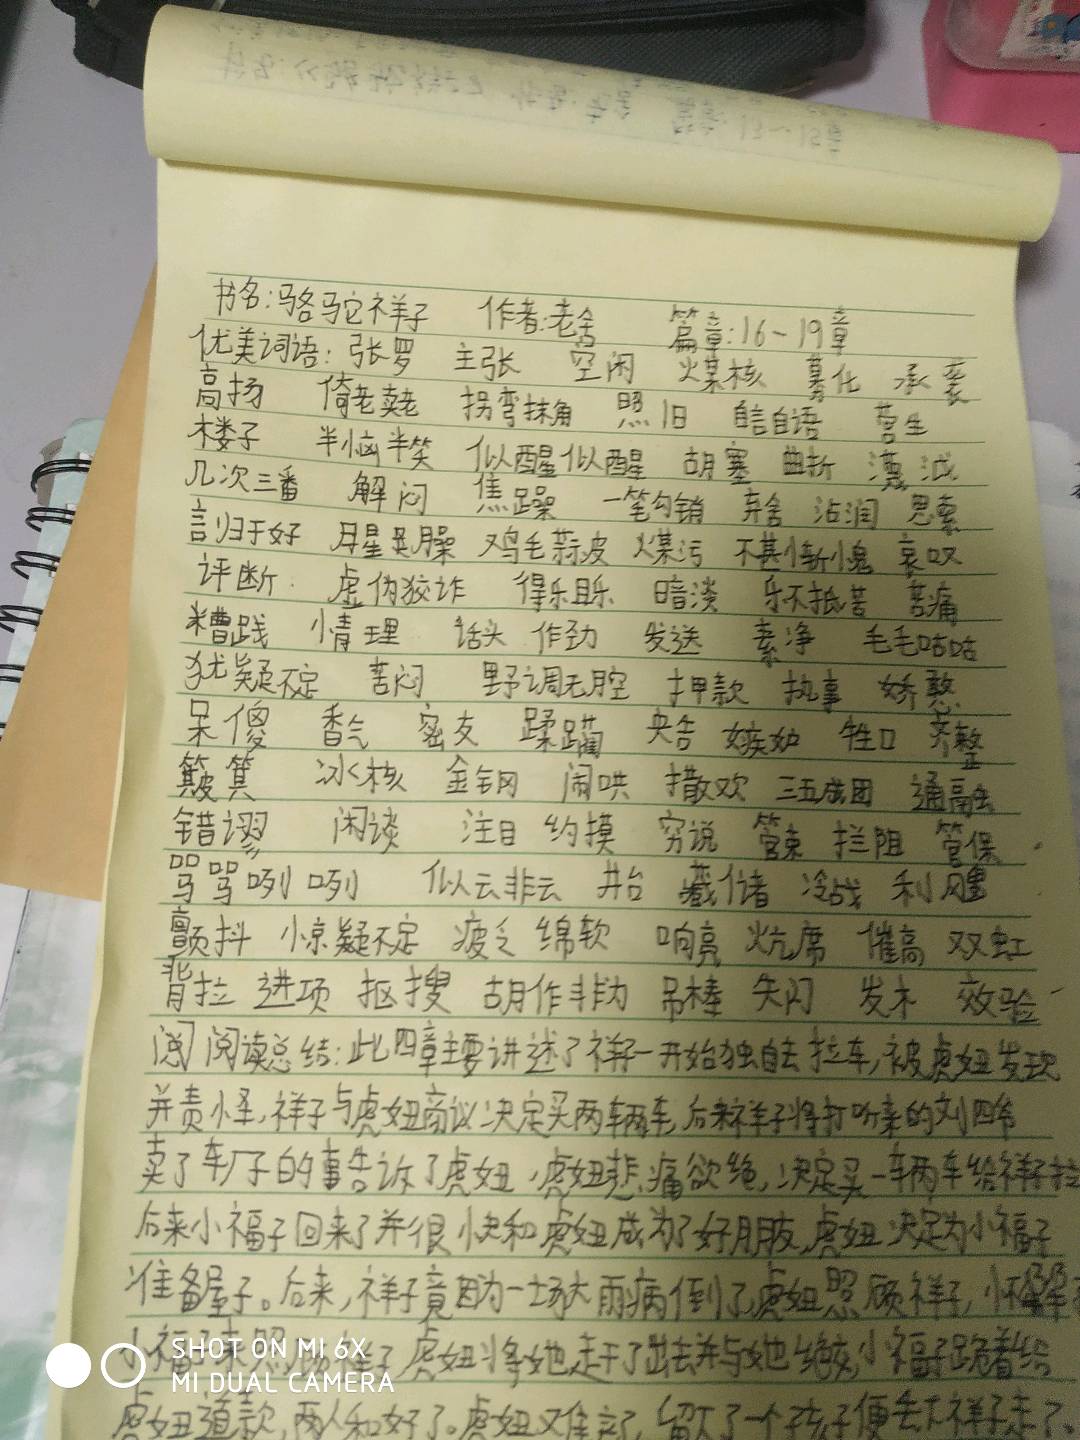 书名:骆驼祥子 作者:老舍 篇章:16~19章
优美词语: 张罗 主张 空闲 煤核 募化 承袭
高扬 倚老卖老 拐弯抹角 照旧 自言自语 营生
楼子 半恼半笑 似醒似醒 胡塞 曲折
几次三番 解闷 焦躁 一笔勾销 弃舍 沾润 思索
言归于好 鸡毛蒜皮 煤污 不甚惭愧 哀叹
评断 虚伪狡诈 得乐且乐 暗淡 乐不抵苦 苦痛
糟践 情理 话头 作劲 发送 素净 毛毛咕咕
犹疑不定 苦闷 野调无腔 押款 执事 娇憨
呆傻 香气 密友 蹂躏 央告 嫉妒 牲口 齐整
簸箕 冰核 金钢 闹哄 撒欢 三五成团 通融
错谬 闲谈 注目 约摸 穷说 管束 拦阻 管保
骂骂咧咧 似云非云 井台 藏储 冷战 利飕
颤抖 惊疑不定 疲乏 绵软 响亮 炕席 催高 双虹
背拉 进项 抠搜 胡作非为 吊棒 失闪 发木 效验
阅读总结:此四章主要讲述了祥子一开始独自去拉车,被虎妞发现
并责怪,祥子与虎妞商议决定买两辆车,后来祥子将打听来的刘四爷
卖了车厂子的事告诉了虎妞,虎妞悲痛欲绝,决定买一辆车给祥子拉
后来小福子回来了并很快和虎妞成为了好朋友,虎妞决定为小福子
准备屋子。后来,祥子竟因为一场大雨病倒了,虎妞照顾祥子,
小福子来照顾祥子,虎妞将她赶了出去并与她绝交,小福子跪着给
虎妞道歉,两人和好了。虎妞又难产了,留下了一个孩子便丢下祥子走了。
SHOT ON MI 6X
MI DUAL CAMERA